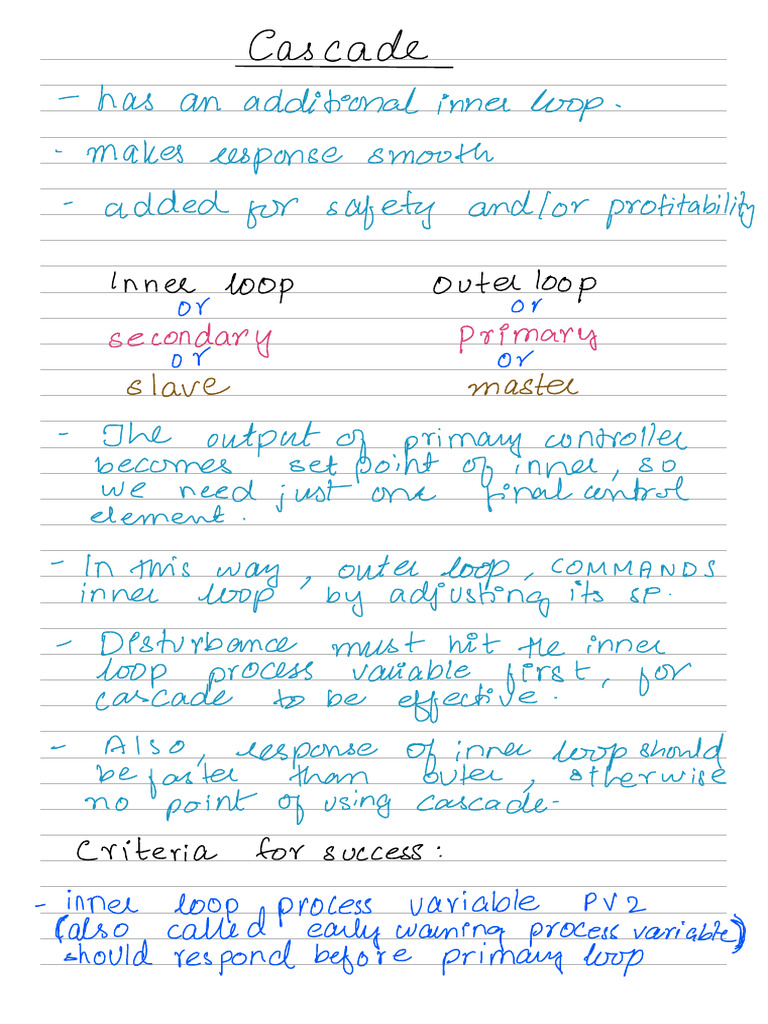 Cascade
- has an additional inner loop.
- makes response smooth
- added for safety and/or profitability
Inner loop Outer loop
or or
secondary Primary
or or
slave master
- The output of primary controller
becomes set point of inner, so
we need just one final control
element.
- In this way, outer loop, COMMANDS
inner loop, by adjusting its SP.
- Disturbance must hit the inner
loop process variable first, for
cascade to be effective.
- Also, response of inner loop should
be faster than outer, otherwise
no point of using cascade-
Criteria for success:
- inner loop process variable PV2
(also called early warning process variable)
should respond before primary loop